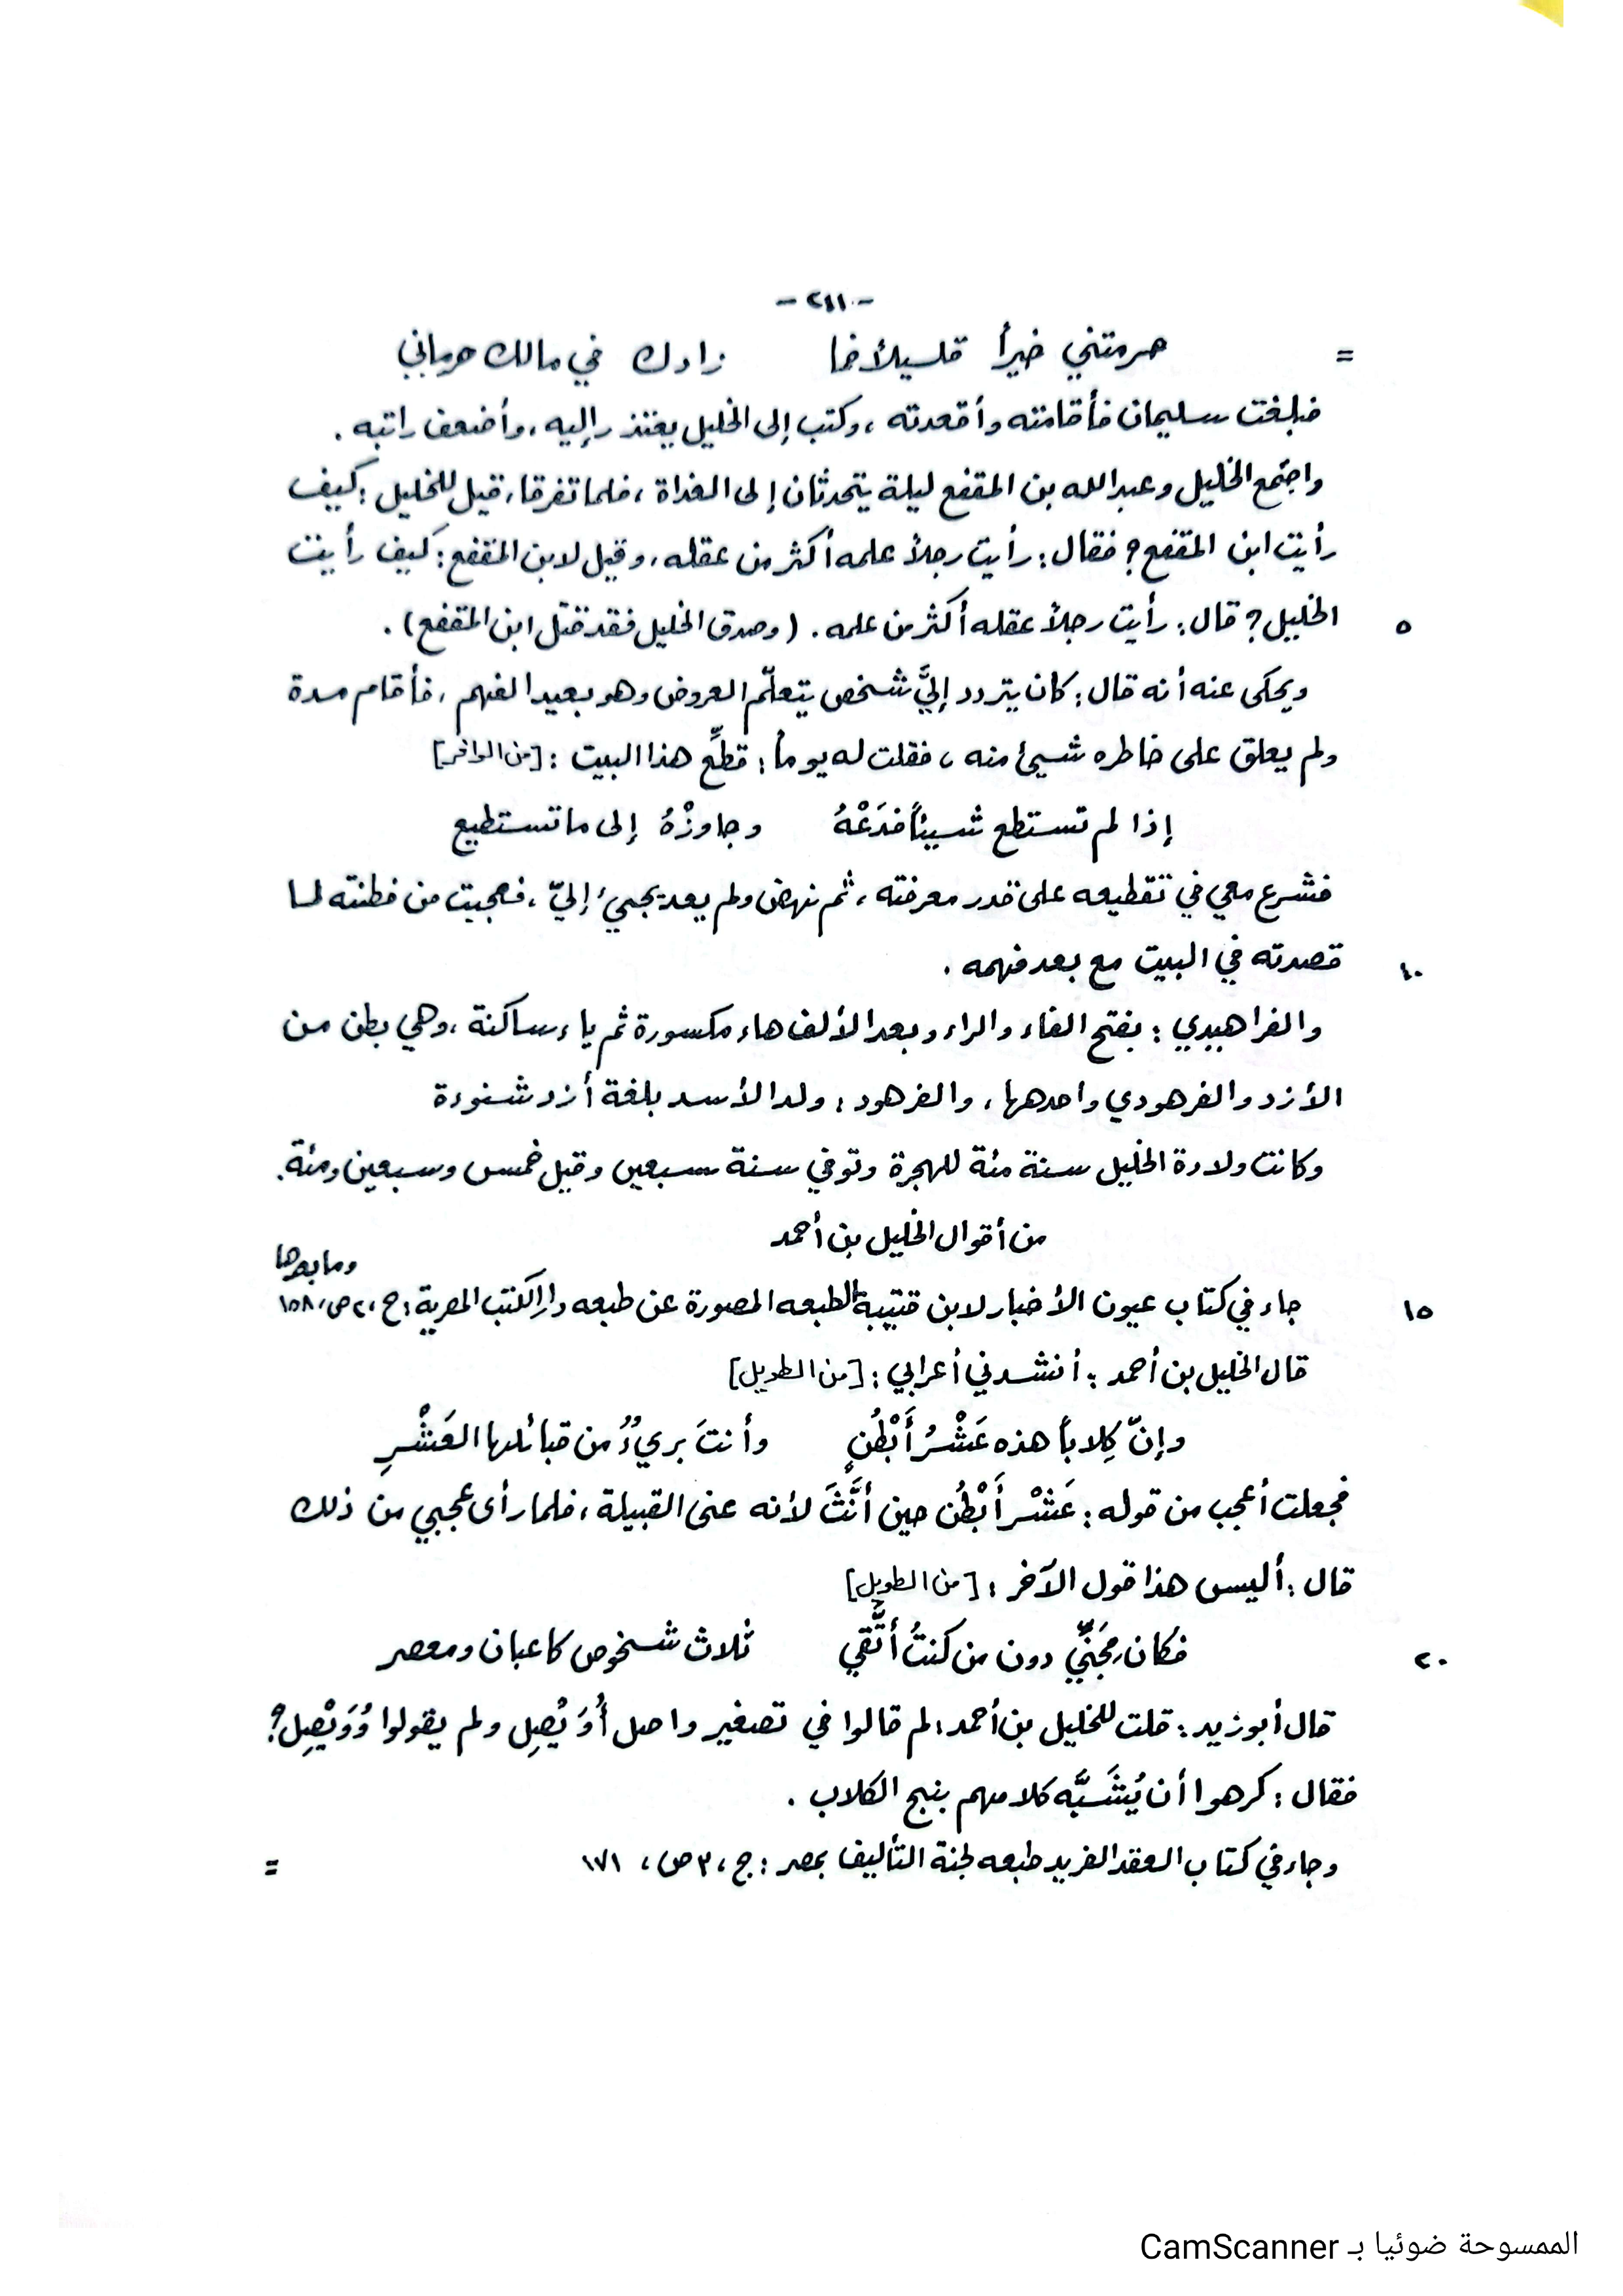 - ٢١١ -
= حرمتني خيراً قليلاً فما زادك في مالك حرماني
فبلغت سليمان فأقامته وأقعدته ، وكتب إلى الخليل يعتذر إليه ، وأضعف راتبه .
واجتمع الخليل وعبد الله بن المقفع ليلة يتحدثان إلى الغداة ، فلما تفرقا ، قيل للخليل : كيف
رأيت ابن المقفع ؟ فقال : رأيت رجلاً علمه أكثر من عقله ، وقيل لابن المقفع : كيف رأيت
٥ الخليل ؟ قال : رأيت رجلاً عقله أكثر من علمه . ( وصدق الخليل فقد قتل ابن المقفع ) .
ويحكى عنه أنه قال : كان يتردد إليَّ شخص يتعلّم العروض وهو بعيد الفهم ، فأقام مدة
ولم يعلق على خاطره شيئ منه ، فقلت له يوماً : قطِّع هذا البيت : [من الوافر]
إذا لم تستطع شيئاً فدَعْهُ وجاوزْهُ إلى ما تستطيع
فشرع معي في تقطيعه على قدر معرفته ، ثم نهض ولم يعد يجيئ إليّ ، فعجبت من فطنته لما
١٠ قصدته في البيت مع بعد فهمه .
والفراهيدي : بفتح الفاء والراء وبعد الألف هاء مكسورة ثم ياء ساكنة ، وهي بطن من
الأزد والفرهودي واحدها ، والفرهود : ولد الأسد بلغة أزد شنوءة
وكانت ولادة الخليل سنة مئة للهجرة وتوفي سنة سبعين وقيل خمس وسبعين ومئة .
من أقوال الخليل بن أحمد
١٥ جاء في كتاب عيون الأخبار لابن قتيبة الطبعه المصورة عن طبعه دار الكتب المصرية : ج ، ٢ ص ، ١٥٨ وما بعدها
قال الخليل بن أحمد : أنشدني أعرابي : [من الطويل]
وإنّ كِلاباً هذه عَشْرُ أَبْطُنٍ وأنتَ بريءٌ من قبائلها العَشْرِ
فجعلت أعجب من قوله : عَشْر أَبْطُن حين أنَّثَ لأنه عنى القبيلة ، فلما رأى عجبي من ذلك
قال : أليس هذا قول الآخر : [من الطويل]
٢٠ فكان مِجَنِّي دون من كنتُ أتَّقي ثلاث شخوص كاعبان ومعصر
قال أبو زيد : قلت للخليل بن أحمد : لم قالوا في تصغير واصل أُوَيْصِل ولم يقولوا وُوَيْصِل ؟
فقال : كرهوا أن يُشَبَّه كلامهم بنبح الكلاب .
وجاء في كتاب العقد الفريد طبعه لجنة التأليف بمصر : ج ، ٣ ص ، ١٧١ =
الممسوحة ضوئيا بـ CamScanner